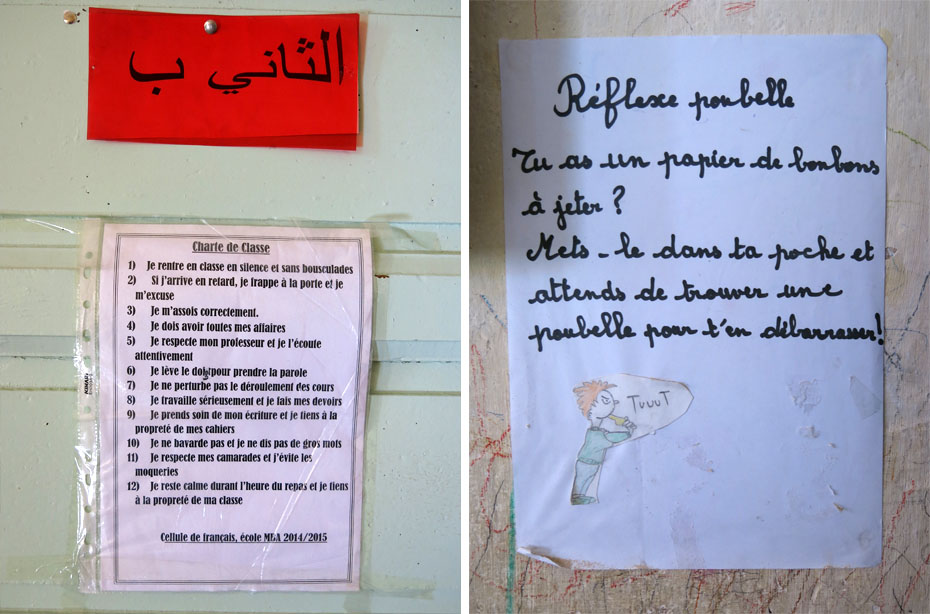 الثاني ب
Charte de Classe
1) Je rentre en classe en silence et sans bousculades
2) Si j'arrive en retard, je frappe à la porte et je
m'excuse
3) Je m'assois correctement.
4) Je dois avoir toutes mes affaires
5) Je respecte mon professeur et je l'écoute
attentivement
6) Je lève le doigt pour prendre la parole
7) Je ne perturbe pas le déroulement des cours
8) Je travaille sérieusement et je fais mes devoirs
9) Je prends soin de mon écriture et je tiens à la
propreté de mes cahiers
10) Je ne bavarde pas et je ne dis pas de gros mots
11) Je respecte mes camarades et j'évite les
moqueries
12) Je reste calme durant l'heure du repas et je tiens
à la propreté de ma classe
Cellule de français, école MBA 2014/2015
Réflexe poubelle
Tu as un papier de bonbons
à jeter ?
Mets-le dans ta poche et
attends de trouver une
poubelle pour t'en débarrasser!
TuuuT